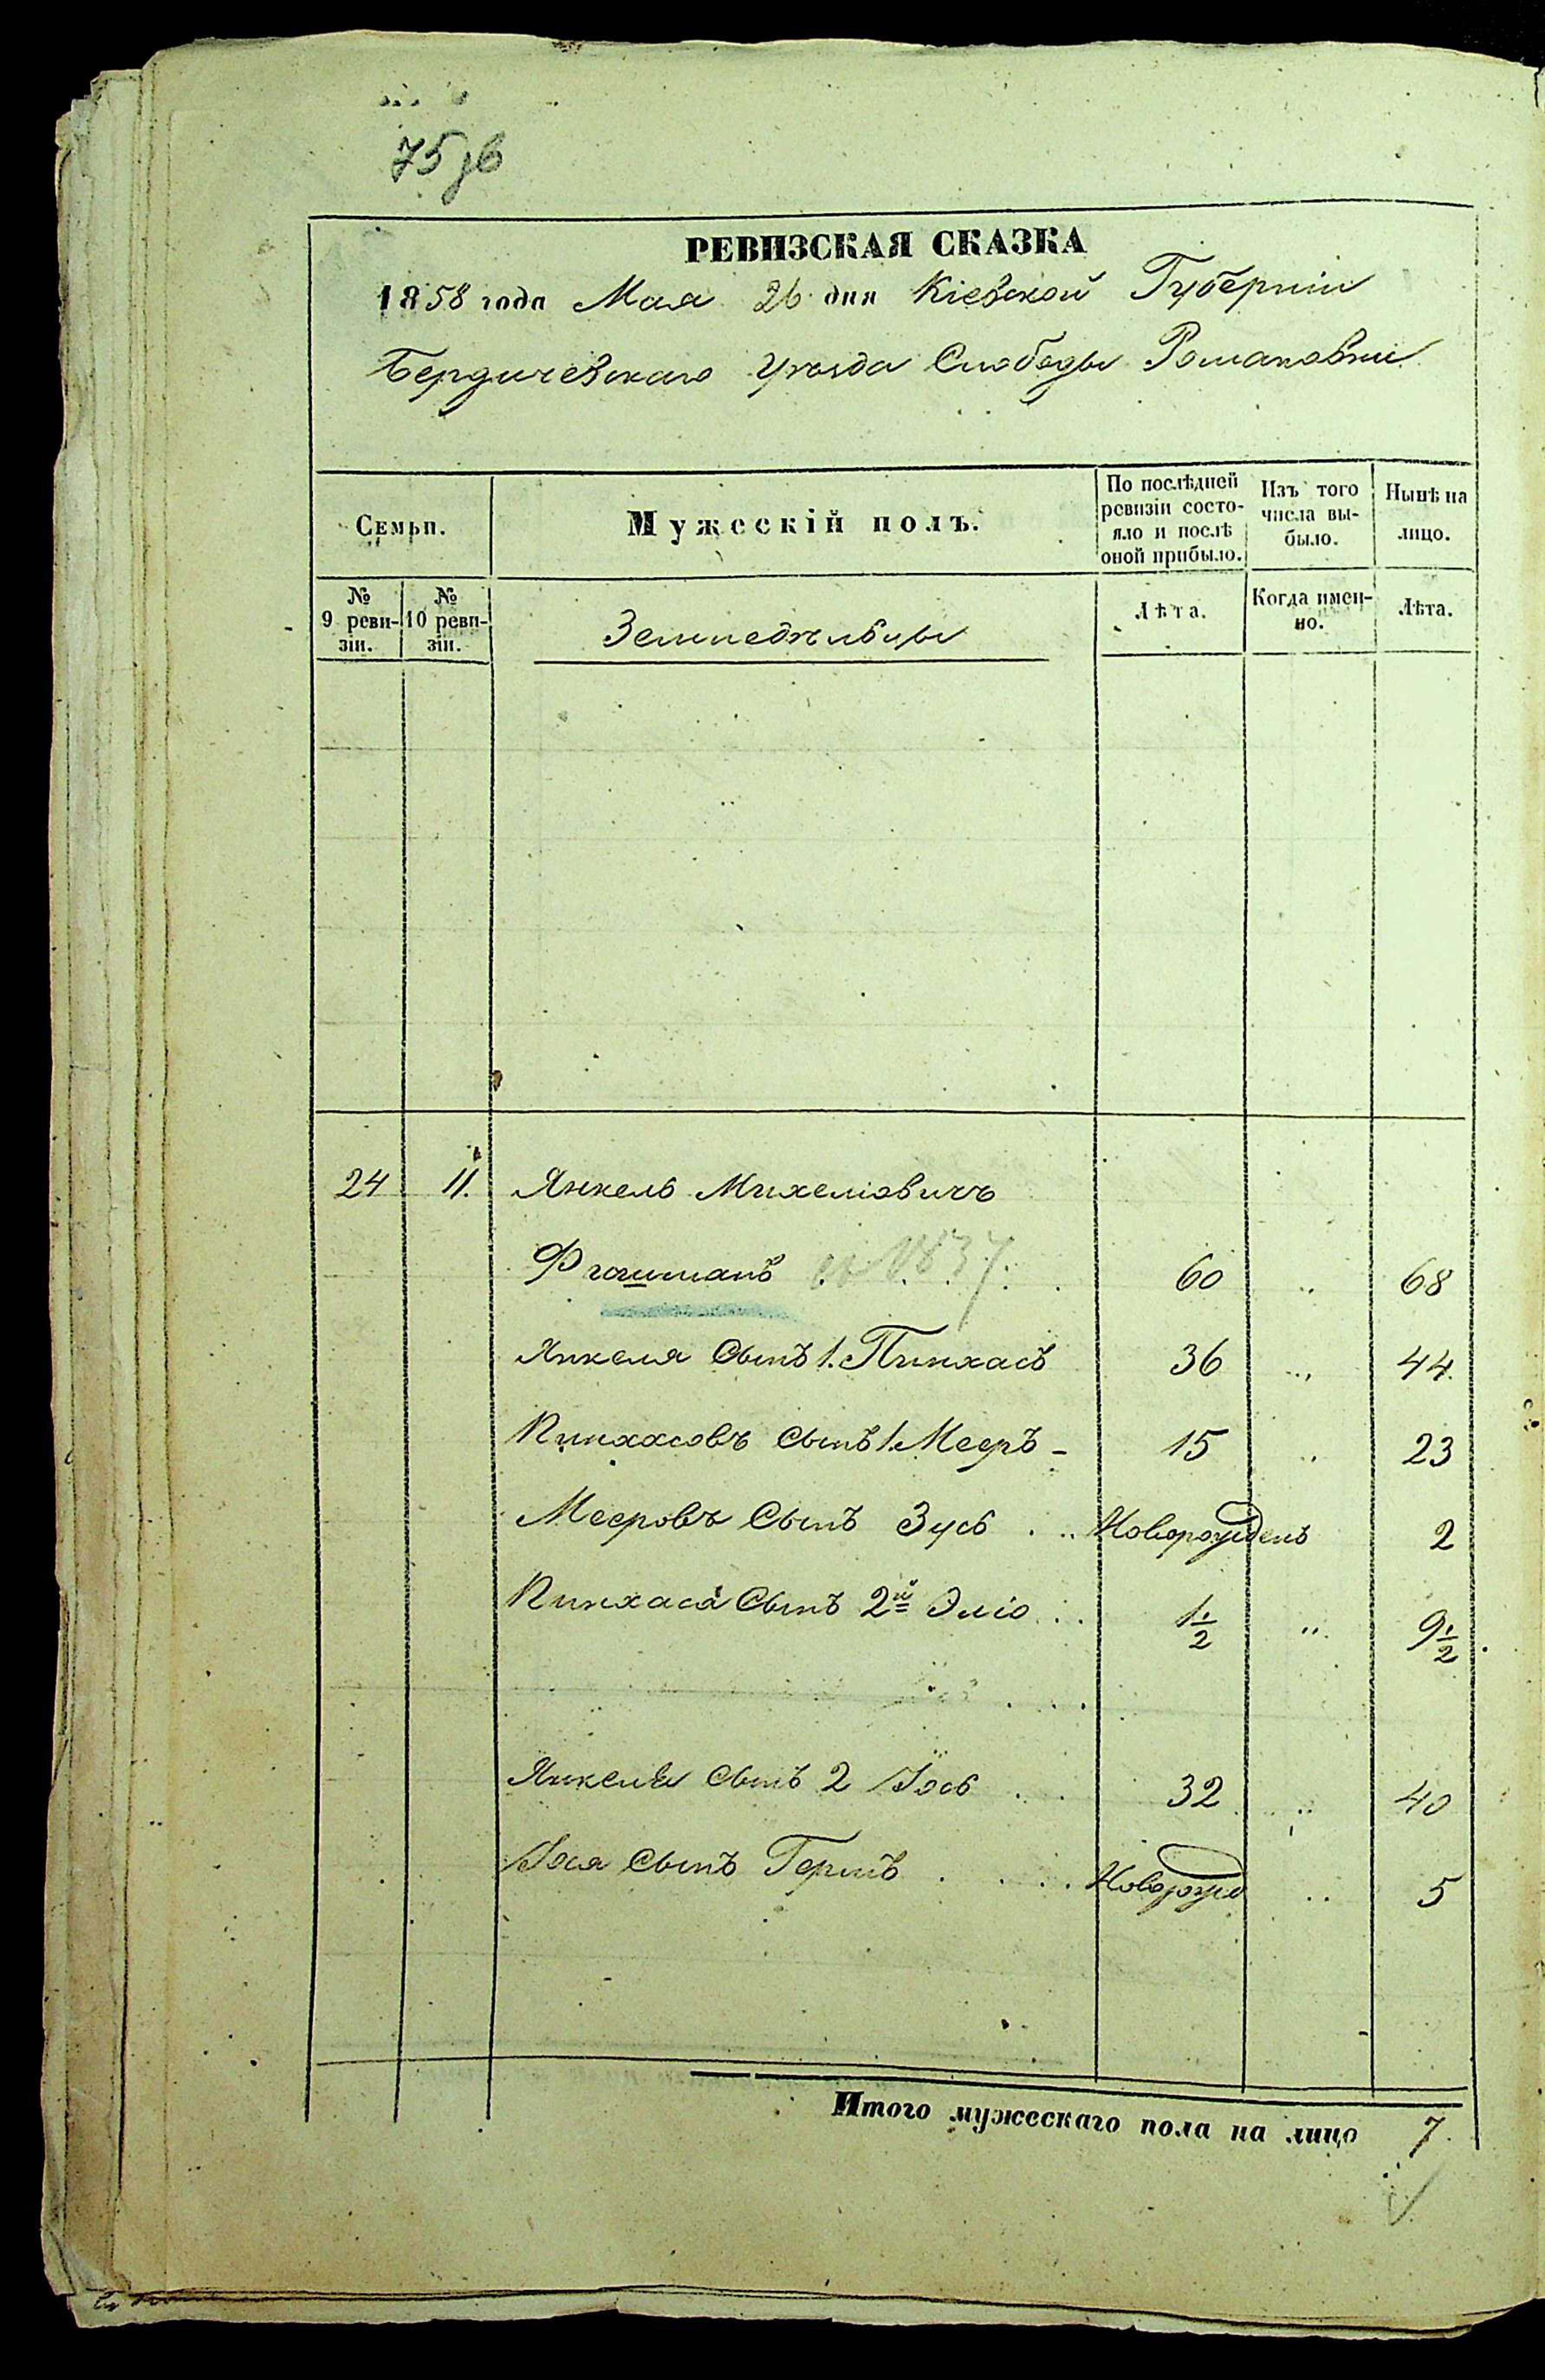 75 јв
РЕВИЗСКАЯ СКАЗКА
1858 года Мая 26 дня Кіевской Губерніи
Бердичевскаго Уѣзда Слободы Романовки
Семьи.
Мужескій полъ.
По послѣдней ревизіи состо-
яло и послѣ оной прибыло.
Изъ того числа вы-
было.
Нынѣ на лицо.
№ 9 реви-
зіи.
№ 10 реви-
зіи.
Земледѣльцы
Лѣта.
Когда имен-
но.
Лѣта.
24 11. Янкель Михеліовичъ
60 „ 68
Янкеля Сынъ 1. Пинхасъ 36 „ 44.
Пинхасовъ Сынъ 1. Мееръ - 15 „ 23
Мееровъ Сынъ Зусь . .. Новорожденъ 2
Пинхаса Сынъ 2й Эліо . . 1 1/2 „ 9 1/2.
Янкеля Сынъ 2 Іось . . 32 „ 40
Іося Сынъ Гершъ . . . . Новорожд „ 5
Итого мужескаго пола на лицо 7.